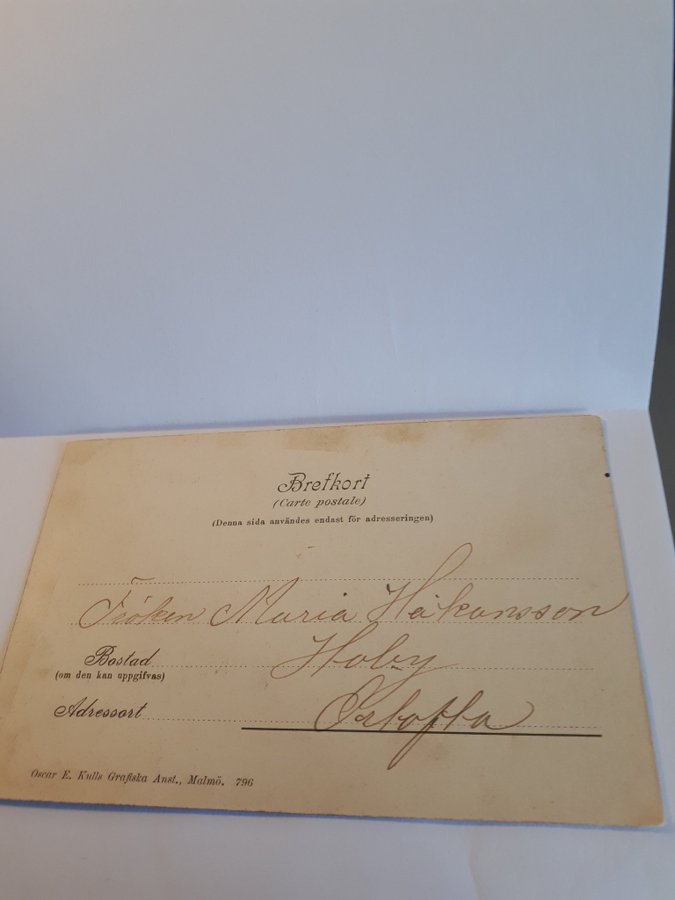 Brefkort
(Carte postale)
(Denna sida användes endast för adresseringen)
Fröken Maria Håkansson
Bostad Hoby
(om den kan uppgifvas)
Adressort Örtofta
Oscar E. Kulls Grafiska Anst., Malmö. 796